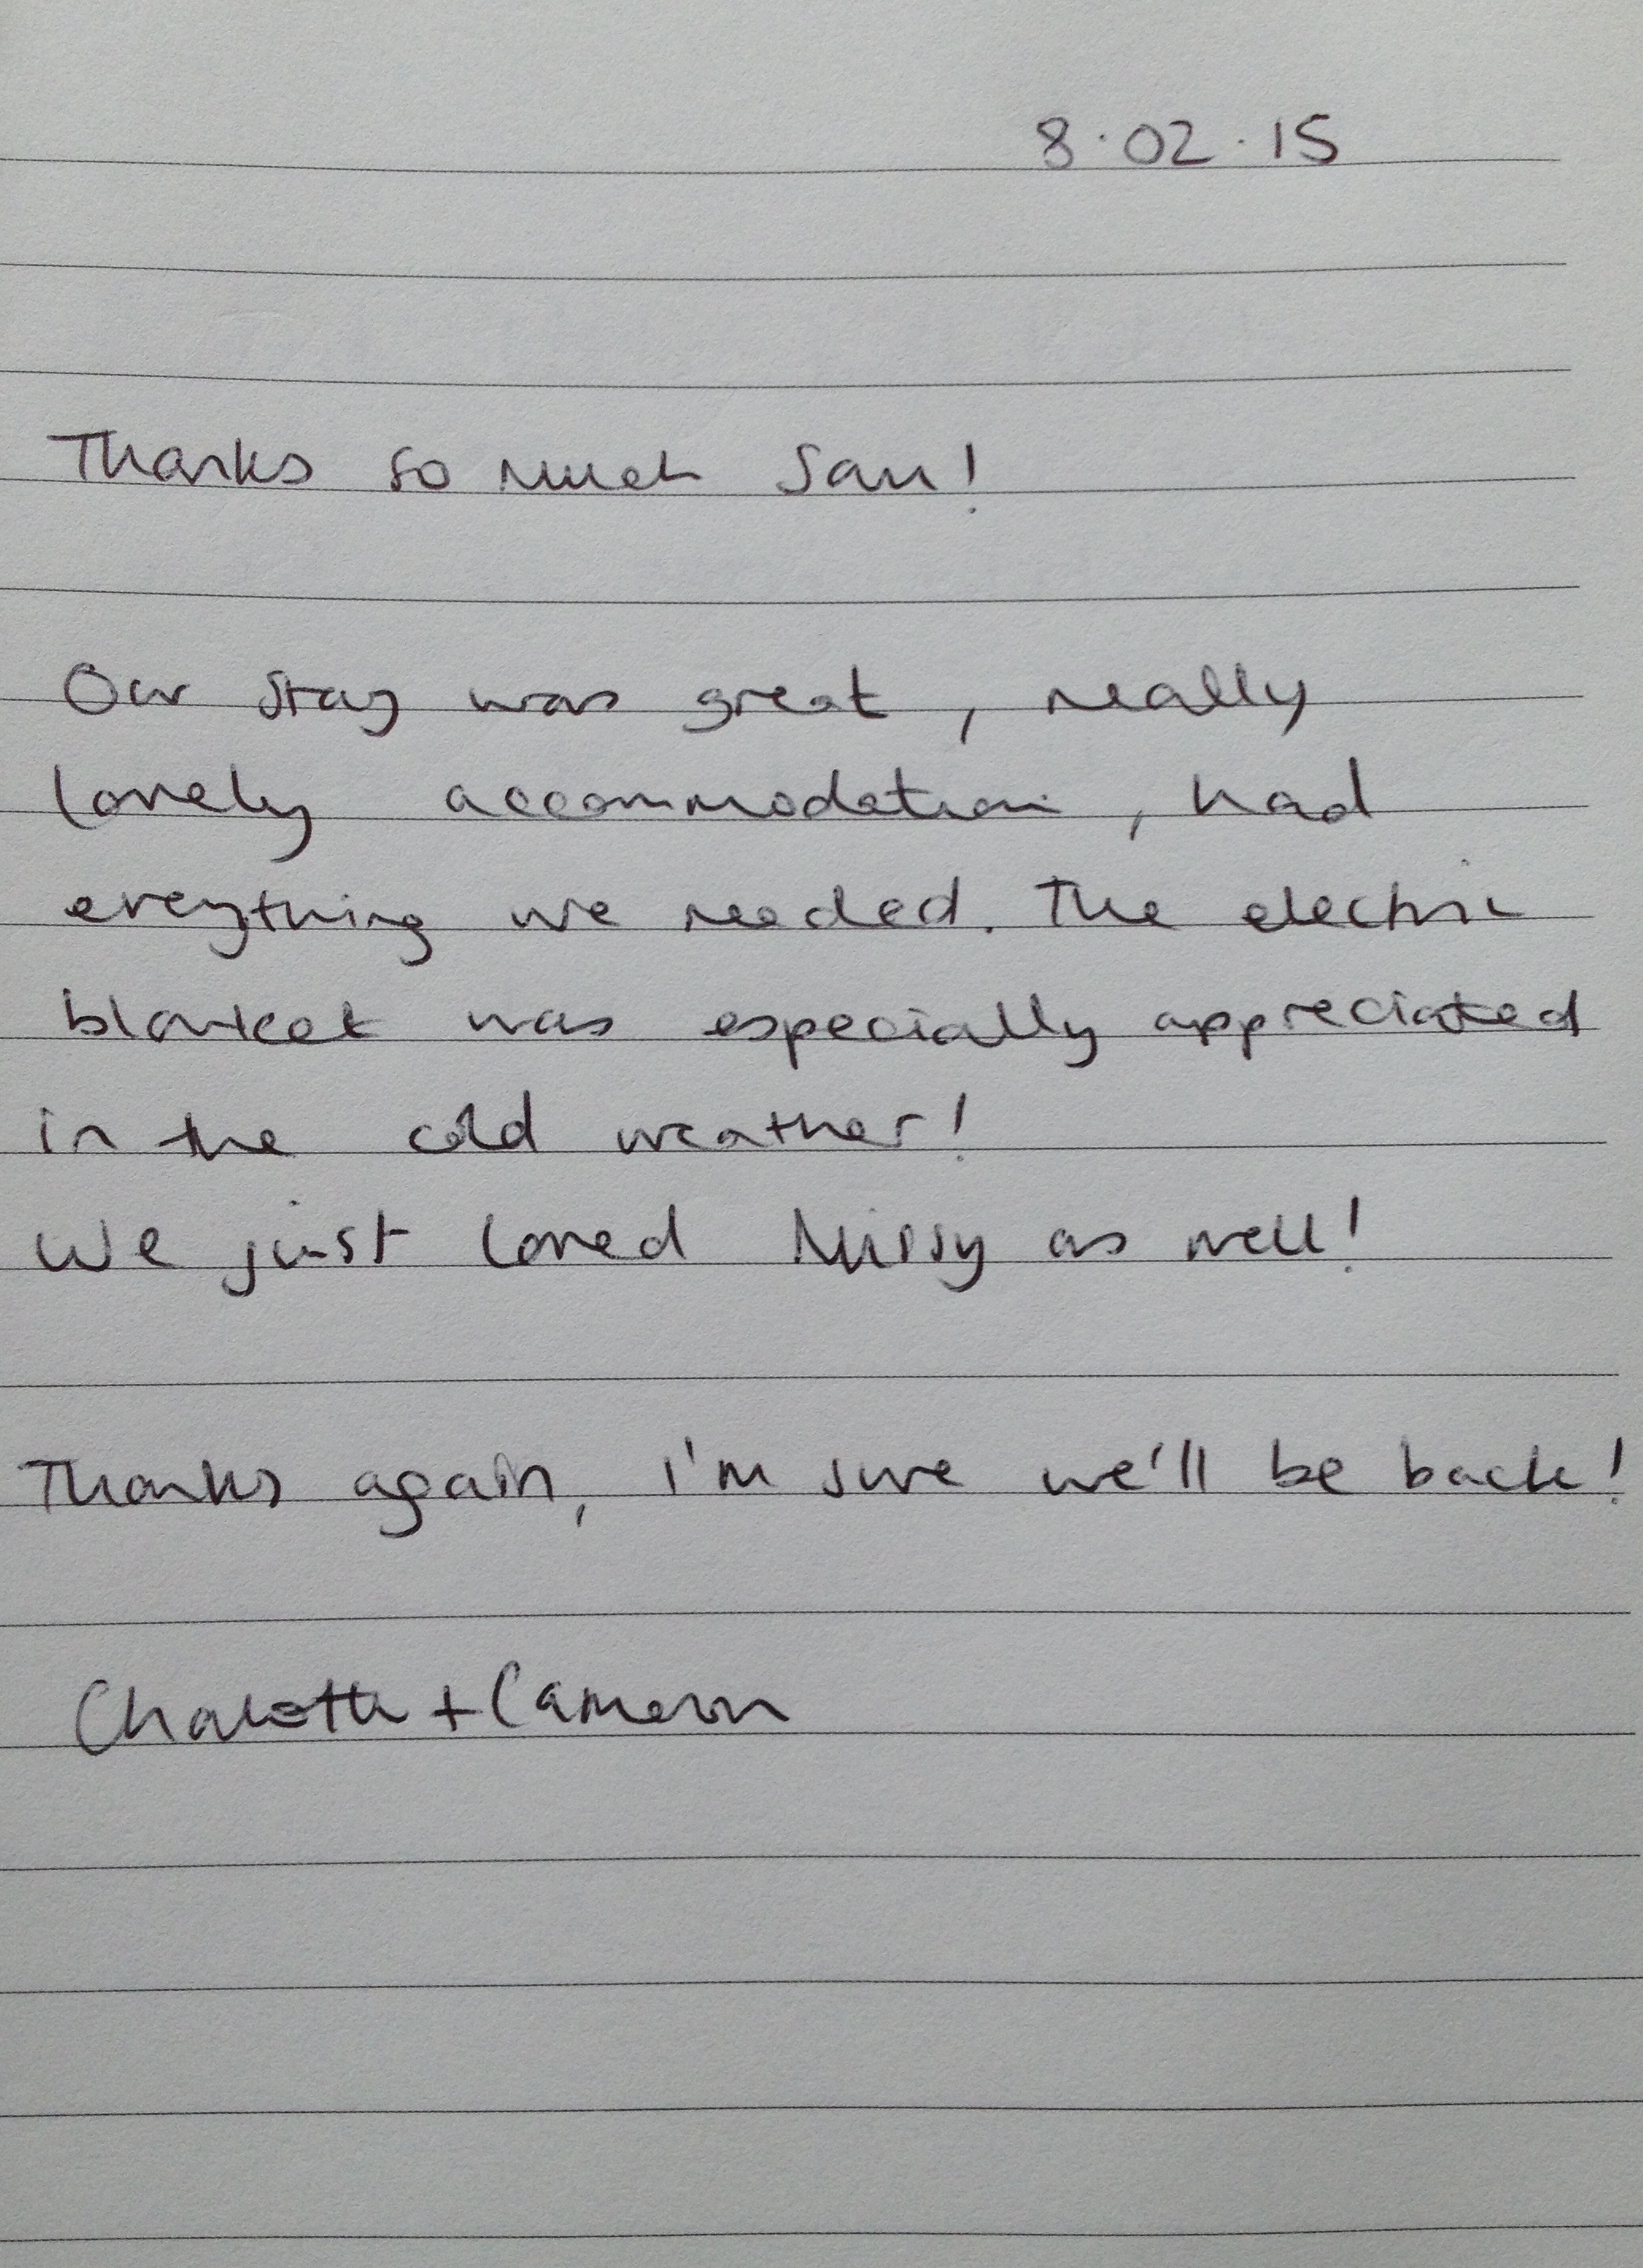 8.02.15
Thanks so much Sam!
Our stay was great, really
lovely accommodation, had
everything we needed. The electric
blanket was especially appreciated
in the cold weather!
We just loved Missy as well!
Thanks again, I'm sure we'll be back!
Charlotte + Cameron